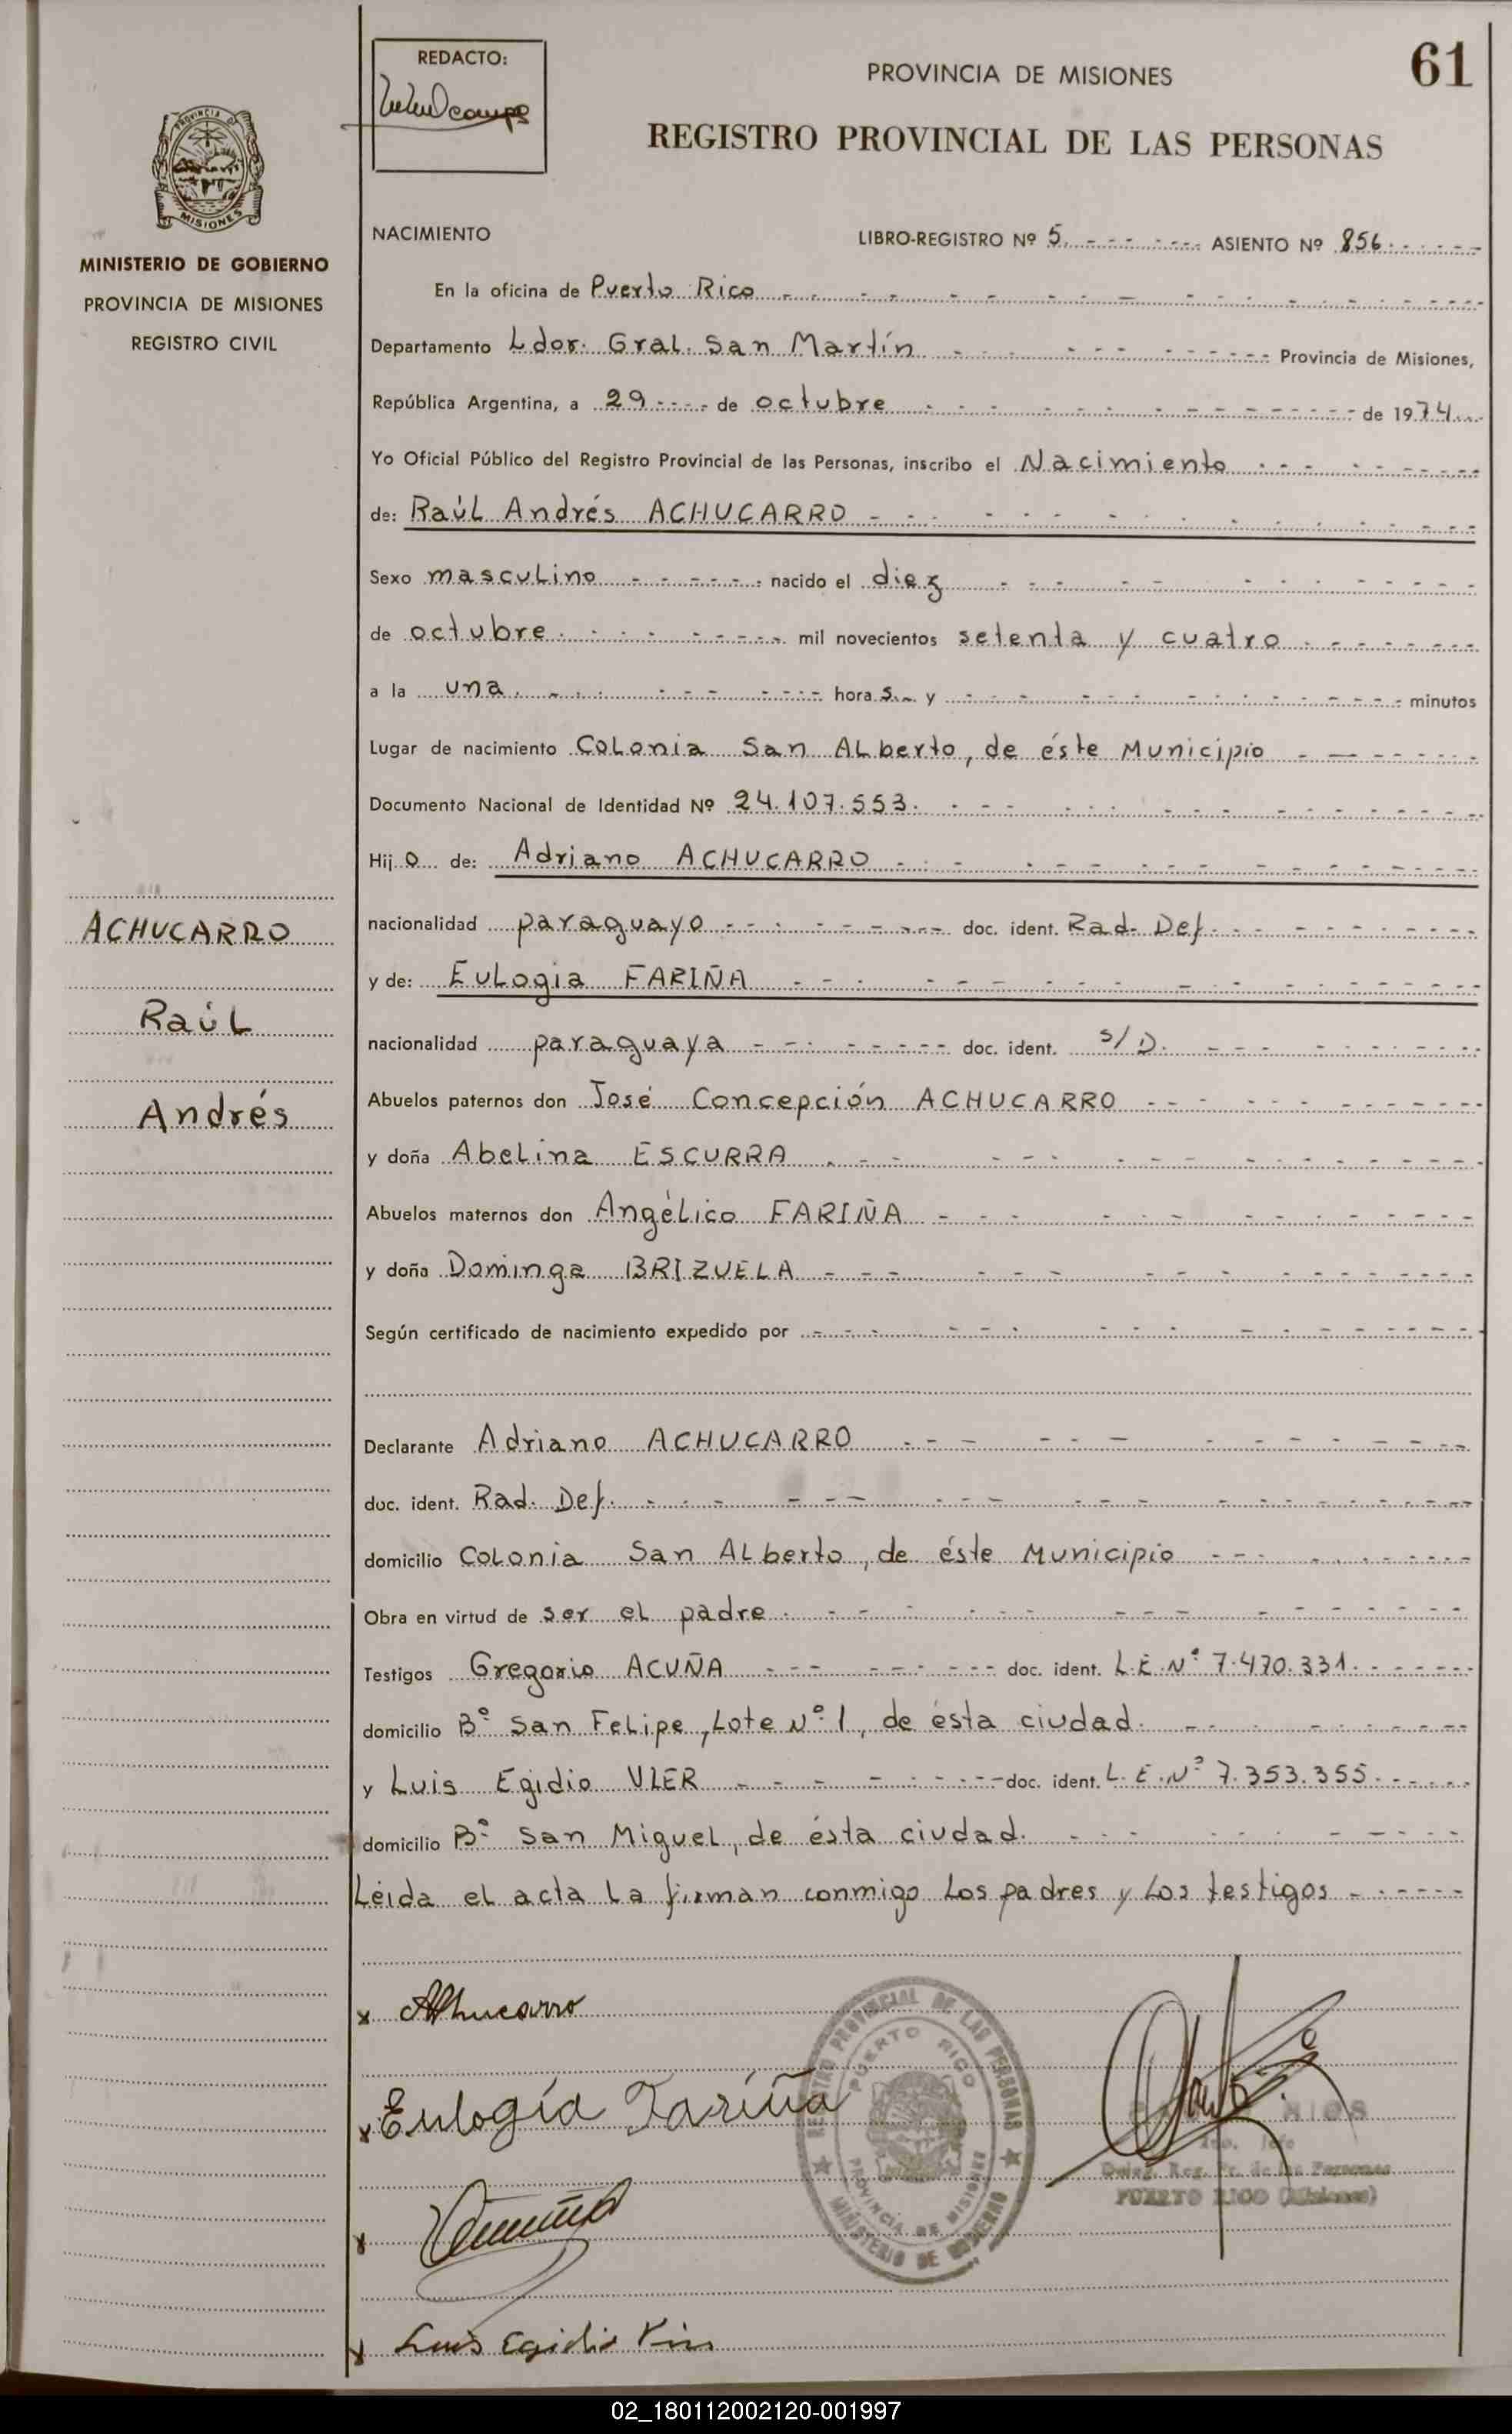 REDACTO:
PROVINCIA DE MISIONES
61
REGISTRO PROVINCIAL DE LAS PERSONAS
PROVINCIA DE
MISIONES
MINISTERIO DE GOBIERNO
PROVINCIA DE MISIONES
REGISTRO CIVIL
NACIMIENTO
LIBRO-REGISTRO Nº 5 ASIENTO Nº 856
En la oficina de Puerto Rico
Departamento Ldor. Gral. San Martín Provincia de Misiones,
República Argentina, a 29 de octubre de 1974
Yo Oficial Público del Registro Provincial de las Personas, inscribo el Nacimiento
de: Raúl Andrés ACHUCARRO
Sexo masculino nacido el diez
de octubre mil novecientos setenta y cuatro
a la una hora s y minutos
Lugar de nacimiento Colonia San Alberto, de éste Municipio
Documento Nacional de Identidad Nº 24.107.553.
Hij o de: Adriano ACHUCARRO
nacionalidad paraguayo doc. ident. Rad. Def.
y de: Eulogia FARIÑA
nacionalidad paraguaya doc. ident. s/D.
Abuelos paternos don José Concepción ACHUCARRO
y doña Abelina ESCURRA
Abuelos maternos don Angélico FARIÑA
y doña Dominga BRIZUELA
Según certificado de nacimiento expedido por
Declarante Adriano ACHUCARRO
doc. ident. Rad. Def.
domicilio Colonia San Alberto, de éste Municipio
Obra en virtud de ser el padre
Testigos Gregorio ACUÑA doc. ident. L.E.Nº 7.470.331.
domicilio Bº San Felipe, Lote Nº 1, de ésta ciudad.
y Luis Egidio VIER doc. ident. L.E.Nº 7.353.355.
domicilio Bº San Miguel, de ésta ciudad.
Léida el acta la firman conmigo los padres y los testigos
ACHUCARRO
Raúl
Andrés
x Achucarro
x Eulogía Fariña
x
x Luis Egidio
REGISTRO PROVINCIAL DE LAS PERSONAS
PUERTO RICO
PROVINCIA DE MISIONES
MINISTERIO DE GOBIERNO
Deleg. Reg. Pr. de las Personas
PUERTO RICO (Misiones)
02_180112002120-001997